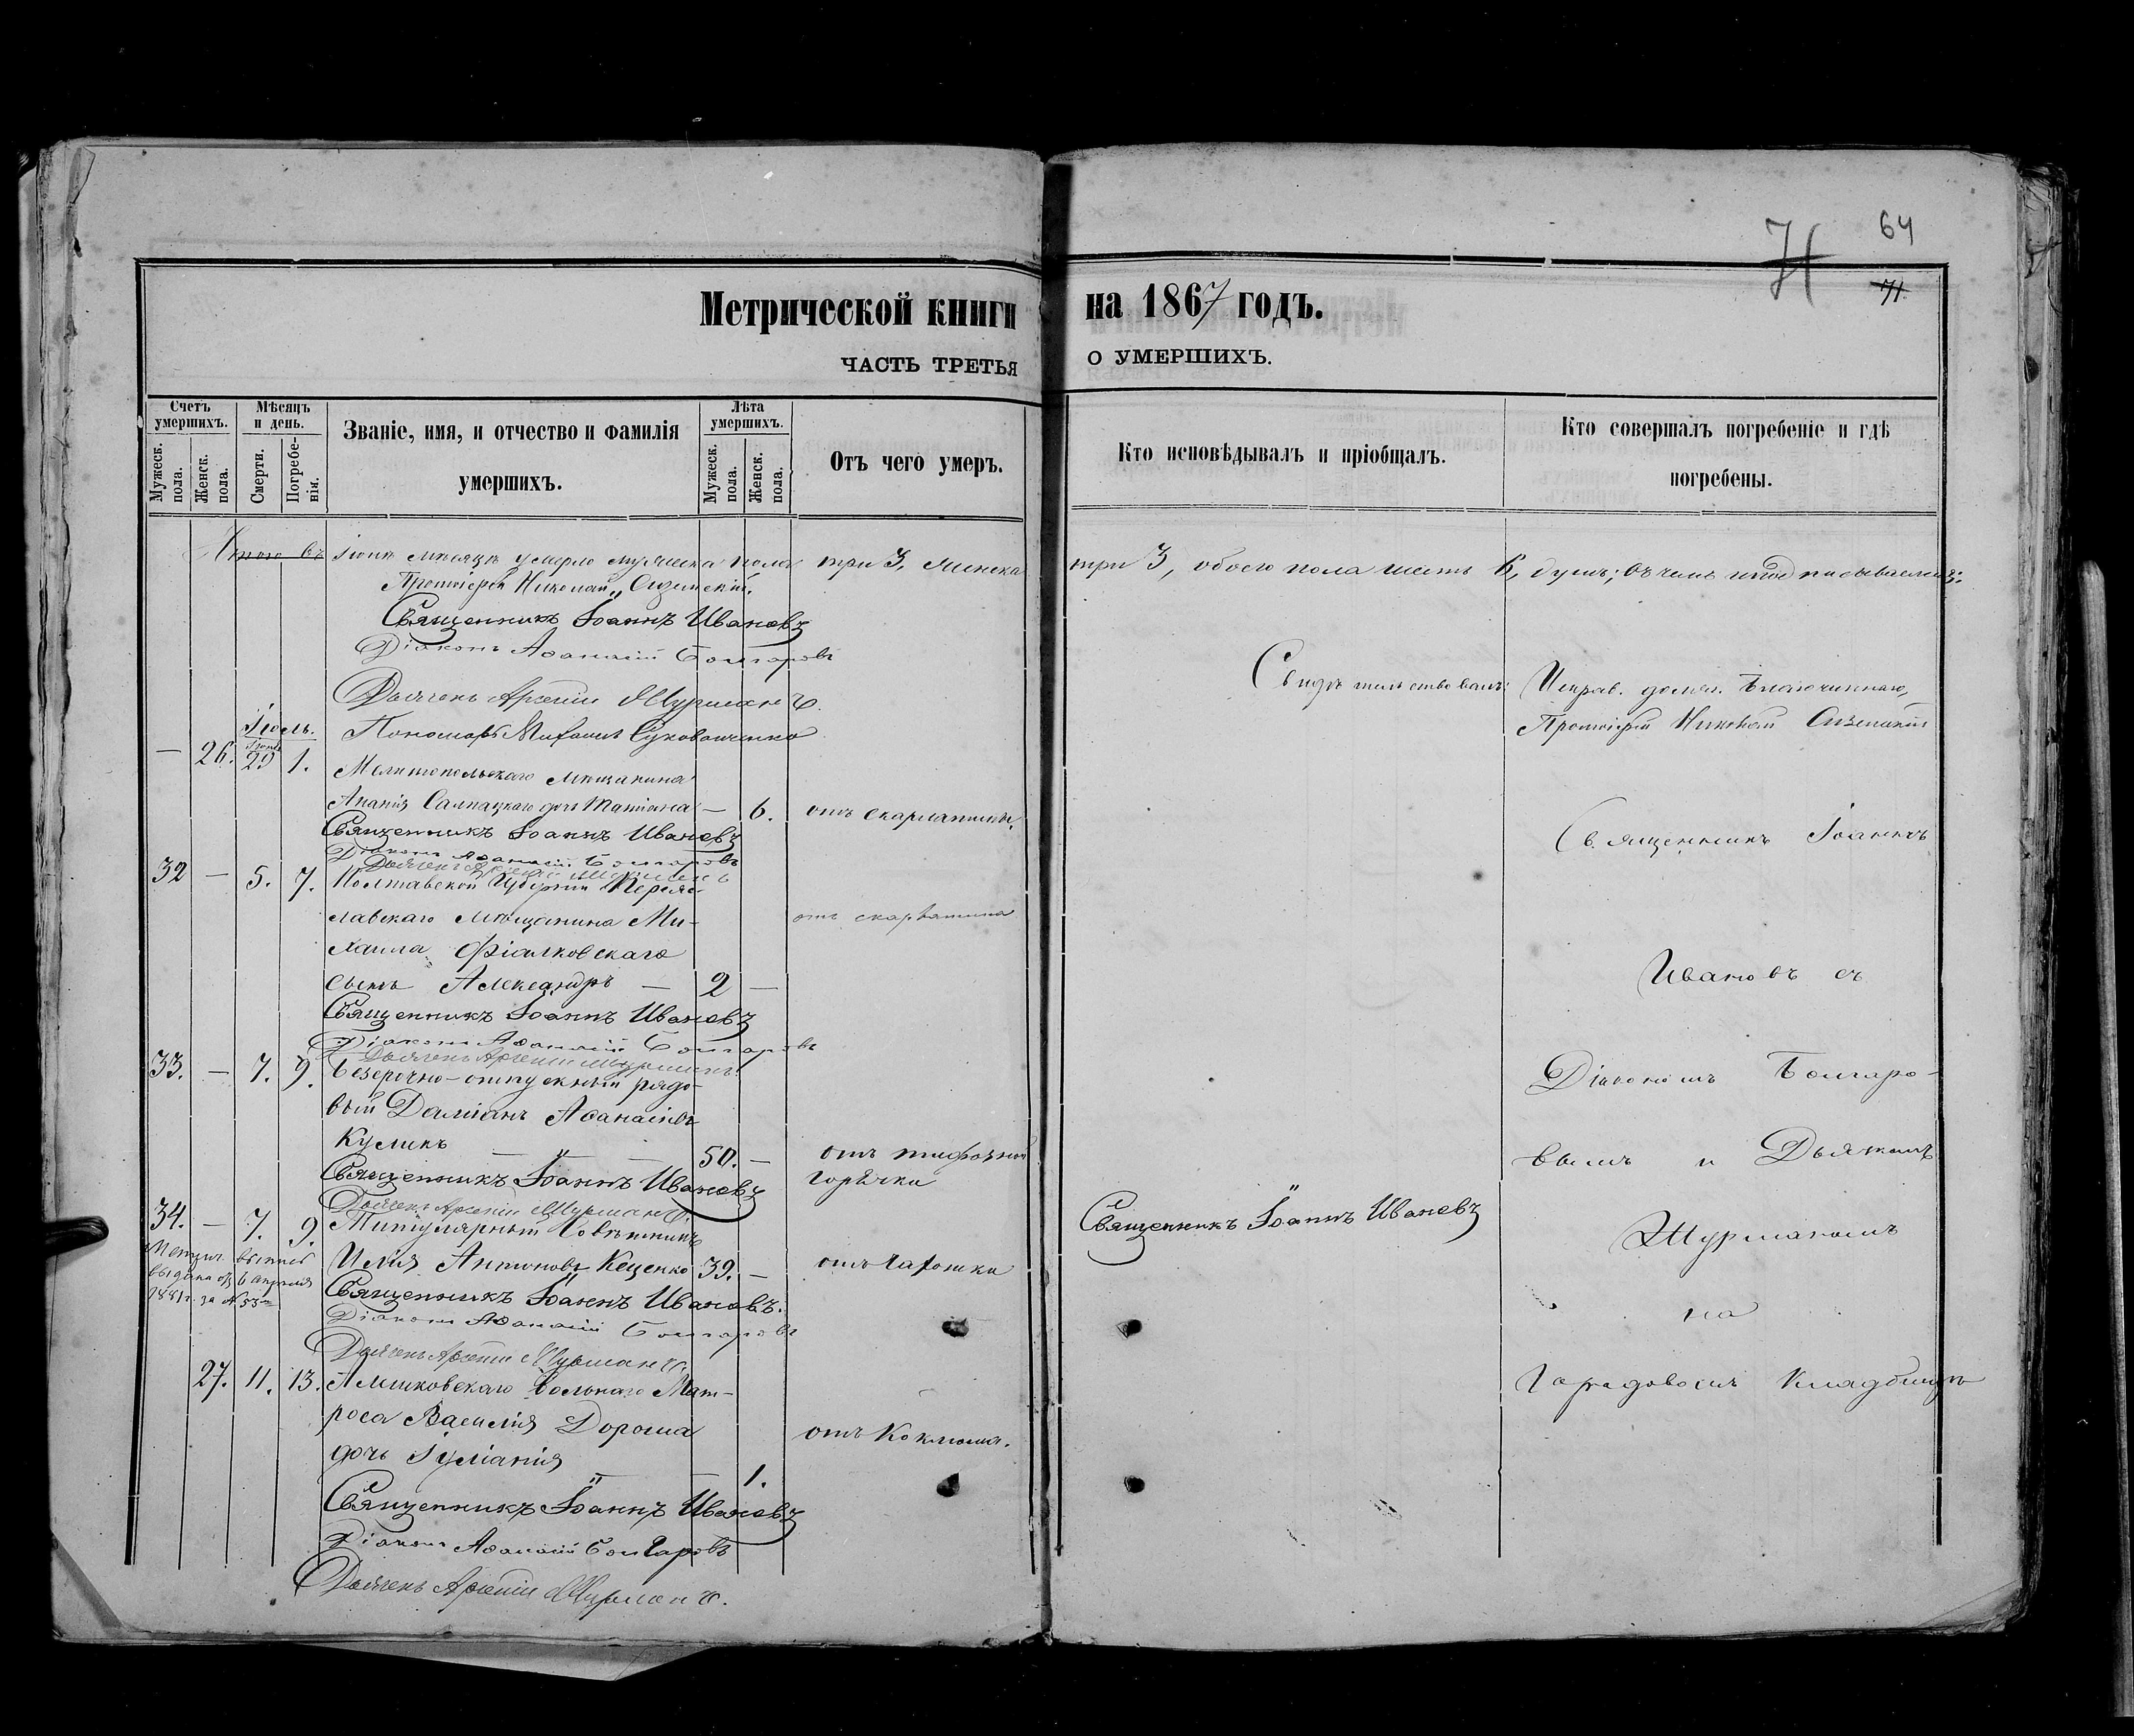 64
71
71
Метрической книги на 1867 годъ.
ЧАСТЬ ТРЕТЬЯ О УМЕРШИХЪ.
Счетъ умершихъ.
Мужеск. пола.
Женск. пола.
Мѣсяцъ и день.
Смерти.
Погребе-
нія.
Званіе, имя, и отчество и фамилія
умершихъ.
Лѣта умершихъ.
Мужеск. пола.
Женск. пола.
Отъ чего умеръ.
Кто исповѣдывалъ и пріобщалъ.
Кто совершалъ погребеніе и гдѣ
погребены.
Итого въ Іюнѣ мѣсяцѣ умерло мужеска пола три 3, женска три 3, обоего пола шесть 6, душъ; въ чемъ и подписываемся:
Протоіерей Николай
Священникъ Іоаннъ Ивановъ
Діаконъ Аѳанасій Болгаровъ
Дьячекъ Арсеній Шурманъ.
Пономарь Михаилъ
Свидѣтельствовалъ: Исправ. должн. Благочиннаго,
Протоіерей Николай
Іюль.
— 26. Іюня 29 1. Мелитопольскаго мѣщанина
Ананія дочь Татіана — 6. отъ скарлатины.
Священникъ Іоаннъ Ивановъ
Діаконъ Аѳанасій Болгаровъ
Дьячекъ Арсеній Шурманъ
32 — 5. 7. Полтавской Губерніи Переяс-
лавскаго Мѣщанина Ми-
хаила Фіалковскаго
сынъ Александръ — 2 —
отъ скарлатина
Священникъ Іоаннъ Ивановъ
Діаконъ Аѳанасій Болгаровъ
Дьячекъ Арсеній Шурманъ
33. — 7. 9. Безсрочно-отпускный рядо-
вый Даміанъ Аѳанасіевъ
Куликъ — " — 50. — отъ тифозной
горячки
Священникъ Іоаннъ Ивановъ
Дьячекъ Арсеній Шурманъ.
34. — 7. 9. Титулярный Совѣтникъ
Илія Антоновъ Кеценко 39. — отъ
Священникъ Іоаннъ Ивановъ.
Діаконъ Аѳанасій Болгаровъ
Дьячекъ Арсеній Шурманъ.
Метрич. выпись
выдана 6 Апрѣля
1881 г. за № 53
27. 11. 13. Алешковскаго вольнаго Мат-
роса Василія Дороша
дочь Іуліанія — 1.
отъ Коклюша.
Священникъ Іоаннъ Ивановъ
Діаконъ Аѳанасій Болгаровъ
Дьячекъ Арсеній Шурманъ.
Священникъ Іоаннъ Ивановъ
Священникъ Іоаннъ
Ивановъ съ
Діакономъ Болгаро-
вымъ и Дьячкомъ
Шурманомъ
на
Городовомъ Кладбищѣ